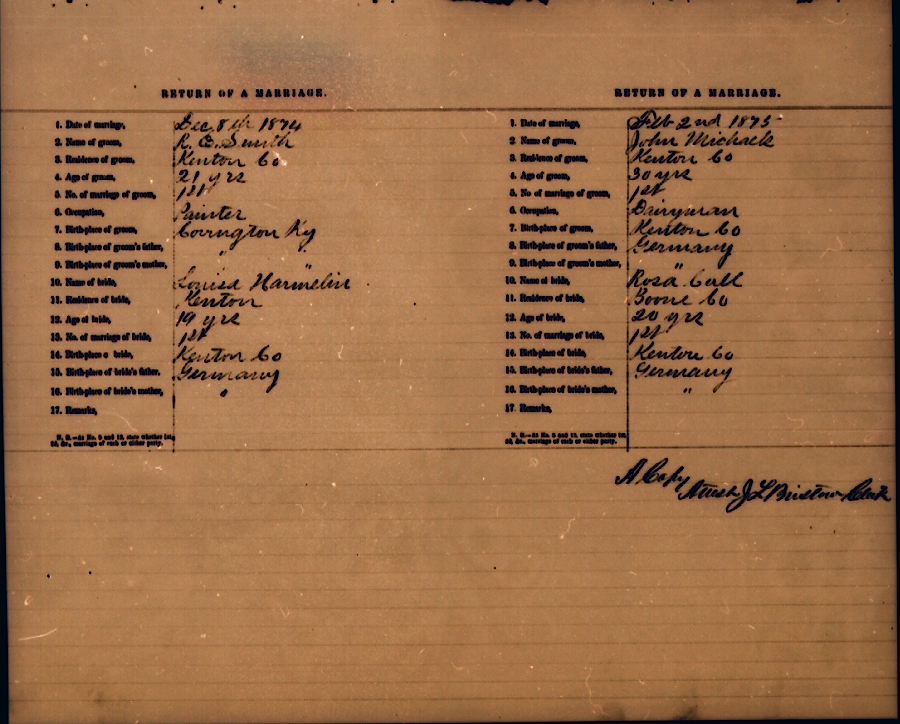 RETURN OF A MARRIAGE.
1. Date of marriage, Dec 8th 1874
2. Name of groom, R. E. Smith
3. Residence of groom, Kenton Co
4. Age of groom, 21 yrs
5. No. of marriage of groom, 1st
6. Occupation, Painter
7. Birth-place of groom, Covington Ky
8. Birth-place of groom's father, "
9. Birth-place of groom's mother, "
10. Name of bride, Louisa Harmelin
11. Residence of bride, Kenton
12. Age of bride, 19 yrs
13. No. of marriage of bride, 1st
14. Birth-place o bride, Kenton Co
15. Birth-place of bride's father, Germany
16. Birth-place of bride's mother, "
17. Remarks,
N. B.—At No. 5 and 13, state whether 1st,
2d, &c., marriage of each or either party.
RETURN OF A MARRIAGE.
1. Date of marriage, Feb 2nd 1875
2 Name of groom, John Michaek
3. Residence of groom, Kenton Co
4. Age of groom, 30 yrs
5. No. of marriage of groom, 1st
6. Occupation, Dairyman
7. Birth-place of groom, Kenton Co
8. Birth-place of groom's father, Germany
9. Birth-place of groom's mother, "
10. Name of bride, Rosa Call
11. Residence of bride, Boone Co
12. Age of bride, 20 yrs
13. No. of marriage of bride, 1st
14. Birth-place of bride, Kenton Co
15. Birth-place of bride's father, Germany
16. Birth-place of bride's mother, "
17. Remarks,
N. B.—At No. 5 and 13, state whether 1st,
2d, &c., marriage of each or either party.
A Copy
Attest J L Bristow Clerk